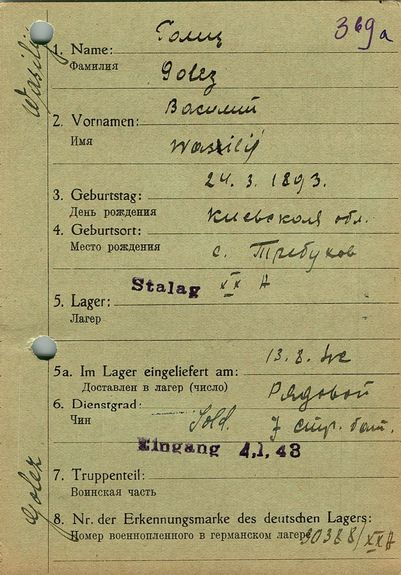 Голец
369a
1. Name:
Фамилия
Golez
Василий
2. Vornamen:
Имя
Wassilij
24. 3. 1893.
3. Geburtstag:
День рождения
Киевская обл.
4. Geburtsort:
Место рождения
с. Требухов
Stalag XX A
5. Lager:
Лагерь
13.8.42
5a. Im Lager eingeliefert am:
Доставлен в лагерь (число)
Рядовой
6. Dienstgrad:
Чин
Sold.
7 стр. бат.
Eingang 4.1.43
7. Truppenteil:
Воинская часть
8. Nr. der Erkennungsmarke des deutschen Lagers:
Номер военнопленного в германском лагере
/XX A
Wasilij
Golez